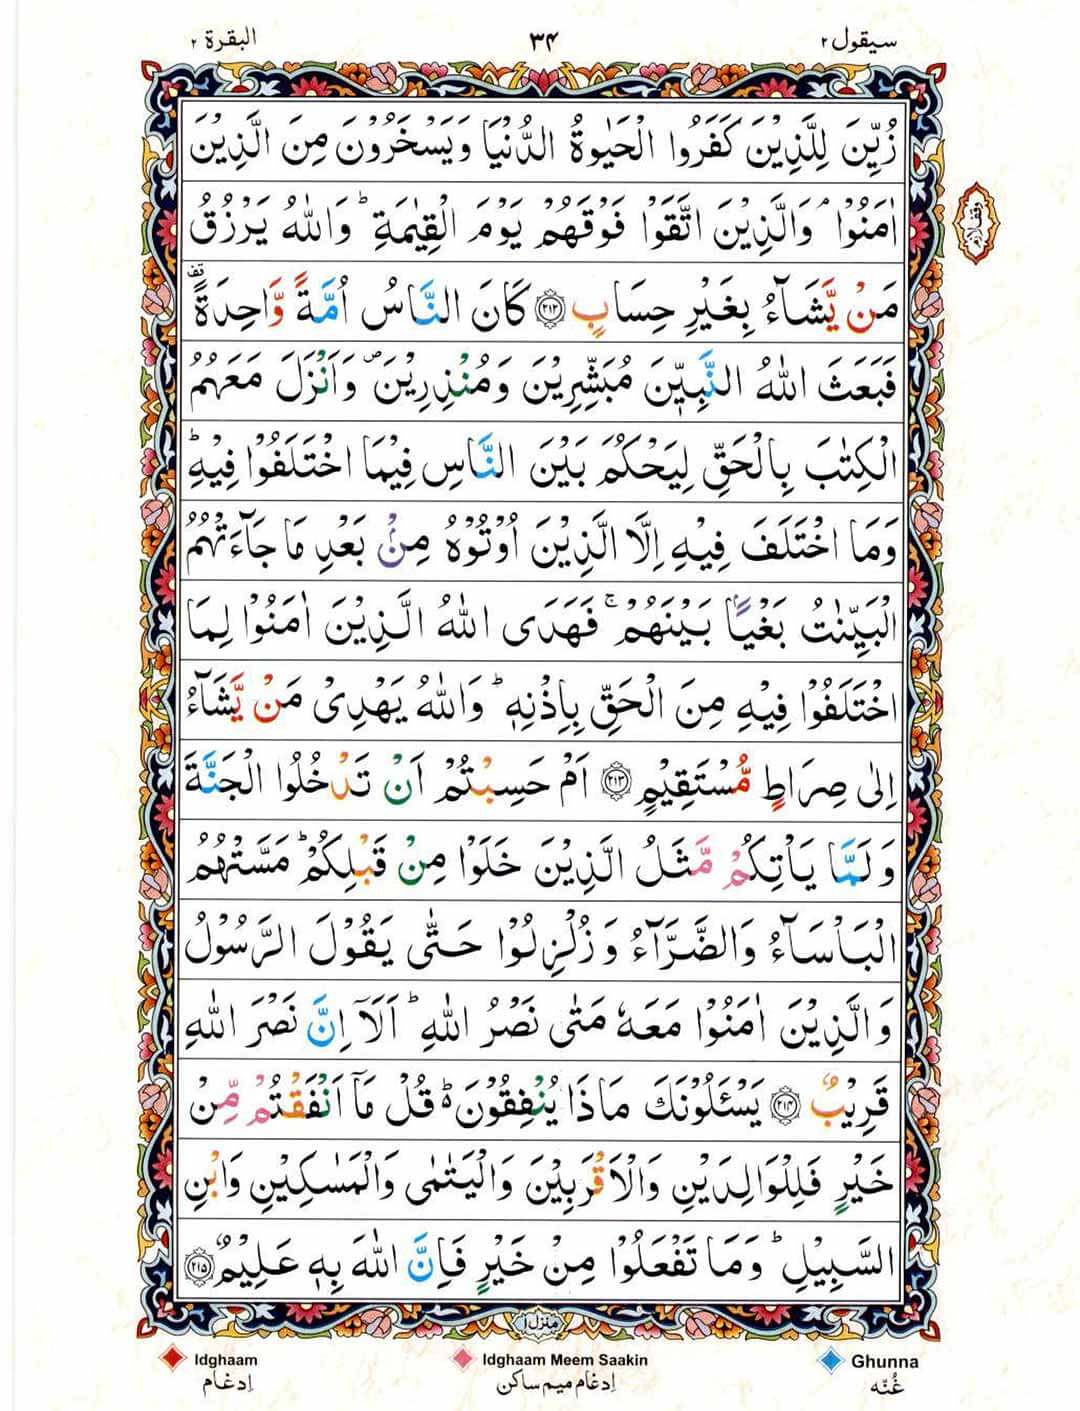 سيقول ٢
٣٤
البقرة ٢
زُيِّنَ لِلَّذِيْنَ كَفَرُوا الْحَيٰوةُ الدُّنْيَا وَيَسْخَرُوْنَ مِنَ الَّذِيْنَ
اٰمَنُوْا ۘ وَالَّذِيْنَ اتَّقَوْا فَوْقَهُمْ يَوْمَ الْقِيٰمَةِ ؕ وَاللّٰهُ يَرْزُقُ
وقف لازم
مَنْ يَّشَآءُ بِغَيْرِ حِسَابٍ ﴿٢١٢﴾ كَانَ النَّاسُ اُمَّةً وَّاحِدَةً ۟
فَبَعَثَ اللّٰهُ النَّبِيّٖنَ مُبَشِّرِيْنَ وَمُنْذِرِيْنَ ۪ وَاَنْزَلَ مَعَهُمُ
الْكِتٰبَ بِالْحَقِّ لِيَحْكُمَ بَيْنَ النَّاسِ فِيْمَا اخْتَلَفُوْا فِيْهِ ؕ
وَمَا اخْتَلَفَ فِيْهِ اِلَّا الَّذِيْنَ اُوْتُوْهُ مِنْۢ بَعْدِ مَا جَآءَتْهُمُ
الْبَيِّنٰتُ بَغْيًۢا بَيْنَهُمْ ۚ فَهَدَى اللّٰهُ الَّذِيْنَ اٰمَنُوْا لِمَا
اخْتَلَفُوْا فِيْهِ مِنَ الْحَقِّ بِاِذْنِهٖ ؕ وَاللّٰهُ يَهْدِىْ مَنْ يَّشَآءُ
اِلٰى صِرَاطٍ مُّسْتَقِيْمٍ ﴿٢١٣﴾ اَمْ حَسِبْتُمْ اَنْ تَدْخُلُوا الْجَنَّةَ
وَلَمَّا يَاْتِكُمْ مَّثَلُ الَّذِيْنَ خَلَوْا مِنْ قَبْلِكُمْ ؕ مَسَّتْهُمُ
الْبَاْسَآءُ وَالضَّرَّآءُ وَزُلْزِلُوْا حَتّٰى يَقُوْلَ الرَّسُوْلُ
وَالَّذِيْنَ اٰمَنُوْا مَعَهٗ مَتٰى نَصْرُ اللّٰهِ ؕ اَلَآ اِنَّ نَصْرَ اللّٰهِ
قَرِيْبٌ ﴿٢١٤﴾ يَسْـَٔلُوْنَكَ مَاذَا يُنْفِقُوْنَ ؕ قُلْ مَآ اَنْفَقْتُمْ مِّنْ
خَيْرٍ فَلِلْوَالِدَيْنِ وَالْاَقْرَبِيْنَ وَالْيَتٰمٰى وَالْمَسٰكِيْنِ وَابْنِ
السَّبِيْلِ ؕ وَمَا تَفْعَلُوْا مِنْ خَيْرٍ فَاِنَّ اللّٰهَ بِهٖ عَلِيْمٌ ﴿٢١٥﴾
منزل ١
Idghaam
إدغام
Idghaam Meem Saakin
إدغام ميم ساكن
Ghunna
غُنّه